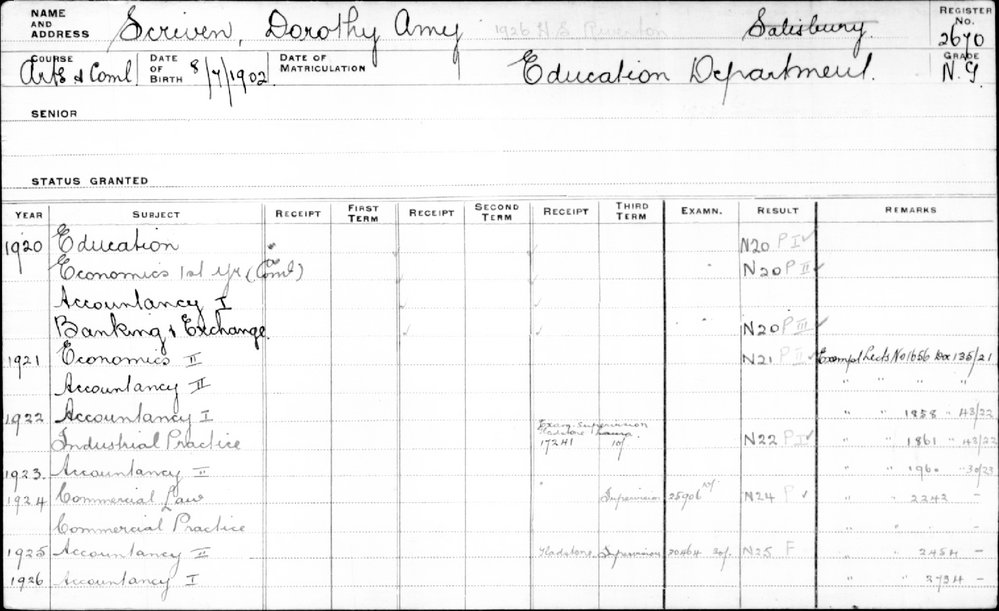 NAME AND ADDRESS Scriven, Dorothy Amy 1926 H S Riverton Salisbury REGISTER No. 2670
COURSE Arts & Coml. DATE OF BIRTH 8/7/1902 DATE OF MATRICULATION Education Department. GRADE N.G.
SENIOR
STATUS GRANTED
YEAR SUBJECT RECEIPT FIRST TERM RECEIPT SECOND TERM RECEIPT THIRD TERM EXAMN. RESULT REMARKS
1920 Education N20 P I ✓
Economics 1st Yr (Coml) N20 P II ✓
Accountancy I
Banking & Exchange. N20 P III ✓
1921 Economics II N21 P II ✓ Exempt Lects No 1656 Dx 135/21
Accountancy II " " " "
1922 Accountancy I " " 1858 " 43/22
Exam. Supervision
Industrial Practice 17241 10/ N22 P I ✓ " " 1861 " 43/22
1923. Accountancy II " " 1960 " 30/23
1924 Commercial Law Supervision 25906 N24 P ✓ " " 2242 -
Commercial Practice " " -
1925 Accountancy II Gladstone Supervision 30464 20/. N25 F " " 2454 -
1926 Accountancy I " " 2734 -